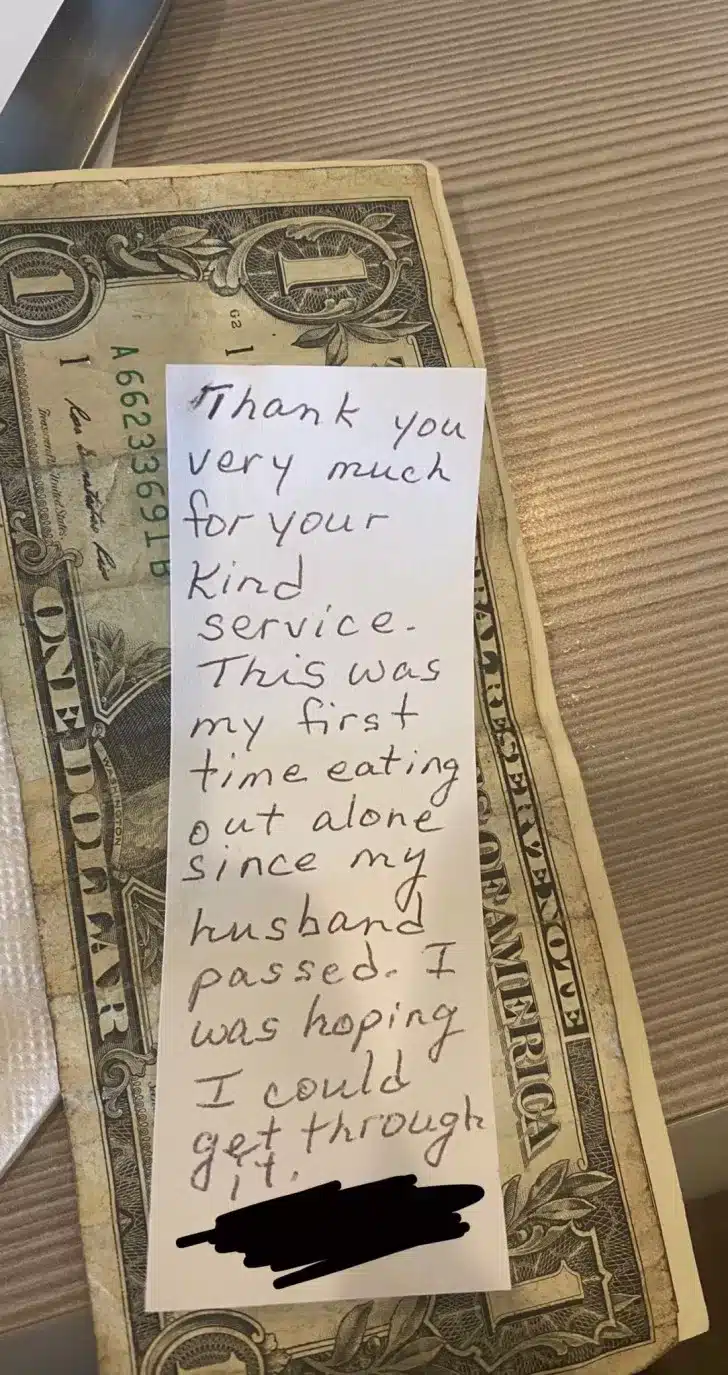 Thank you
very much
for your
kind
service.
This was
my first
time eating
out alone
since my
husband
passed. I
was hoping
I could
get through
it.
1
1
G2
1
A66233691B
1
ONE DOLLAR
WASHINGTON
RESERVE NOTE
OF AMERICA
1
1